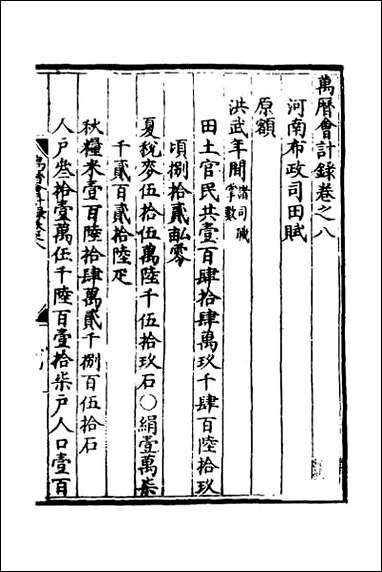 萬曆會計錄卷之八
河南布政司田賦
原額
洪武年間諸司職掌數
田土官民共壹百肆拾肆萬玖千肆百陸拾玖
頃捌拾貳畝零
夏稅麥伍拾伍萬陸千伍拾玖石○絹壹萬柒
千貳百貳拾陸疋
秋糧米壹百陸拾肆萬貳千捌百伍拾石
人戶叁拾壹萬伍千陸百壹拾柒戶人口壹百